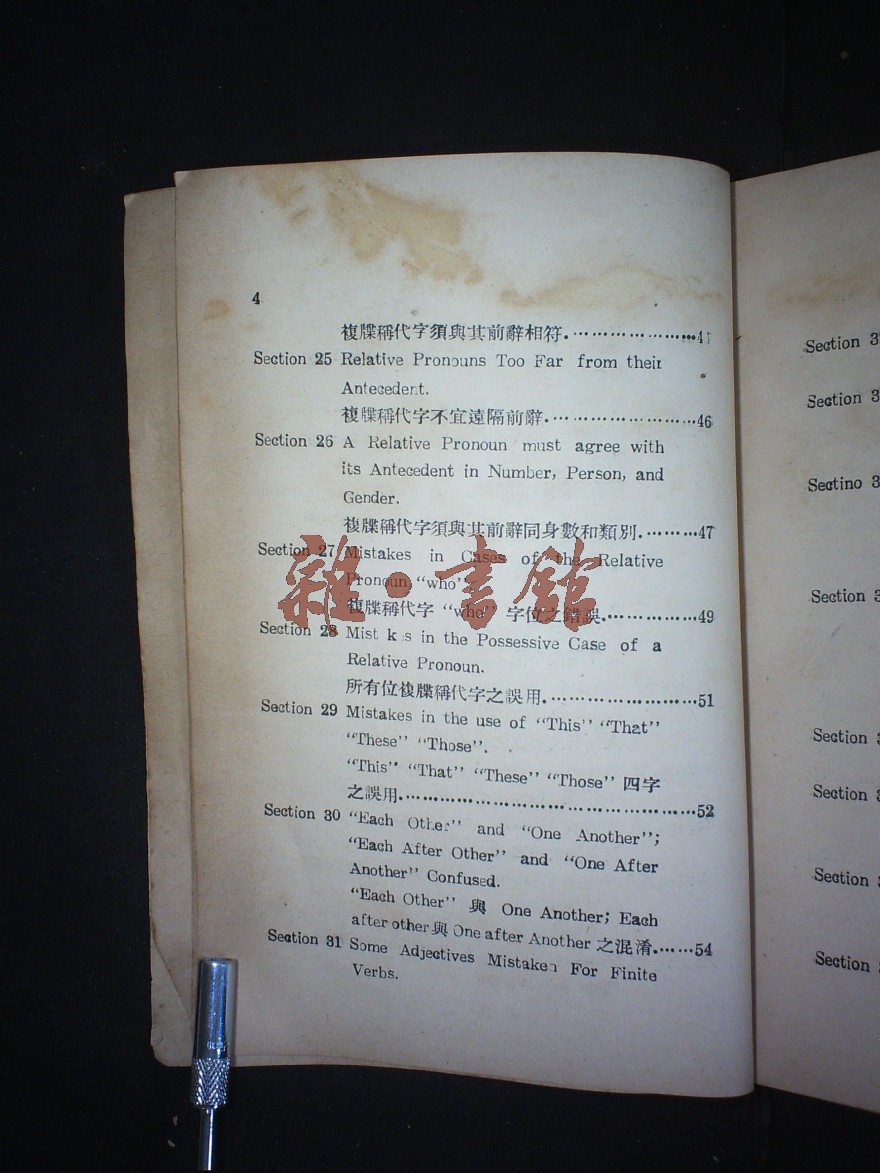 4
複牒稱代字須與其前辭相符.
Section 25 Relative Pronouns Too Far from their
Antecedent.
複牒稱代字不宜遠隔前辭.…………………46
Section 26 A Relative Pronoun must agree with
its Antecedent in Number, Person, and
Gender.
複牒稱代字須與其前辭同身數和類別.………47
Section 27 Mistakes in Cases of the Relative
Pronoun "who"
複牒稱代字 "who" 字位之錯誤.…………49
Section 28 Mist k s in the Possessive Case of a
Relative Pronoun.
所有位複牒稱代字之誤用.…………………51
Section 29 Mistakes in the use of "This" "That"
"These" "Those".
"This" "That" "These" "Those" 四字
之誤用.……………………………………52
Section 30 "Each Other" and "One Another";
"Each After Other" and "One After
Another" Confused.
"Each Other" 與 One Another; Each
after other 與 One after Another 之混淆.……54
Section 31 Some Adjectives Mistaken For Finite
Verbs.
雜·書館
Section 3
Section 3
Sectino 3
Section 3
Section
Section
Section
Section